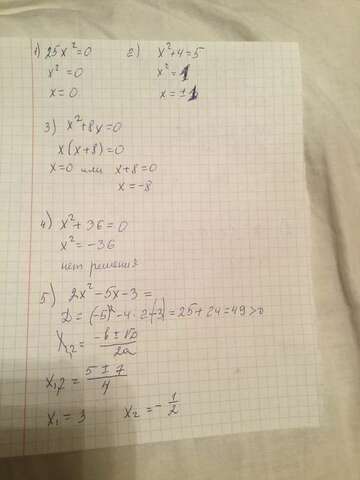 1) 25x²=0
x²=0
x=0
2) x²+4=5
x²=1
x=±1
3) x²+8x=0
x(x+8)=0
x=0 или x+8=0
x=-8
4) x²+36=0
x²=-36
нет решения
5) 2x²-5x-3=
D=(-5)²-4·2(-3)=25+24=49>0
x₁,₂=(-b±√D)/2a
x₁,₂=(5±7)/4
x₁=3 x₂=-1/2